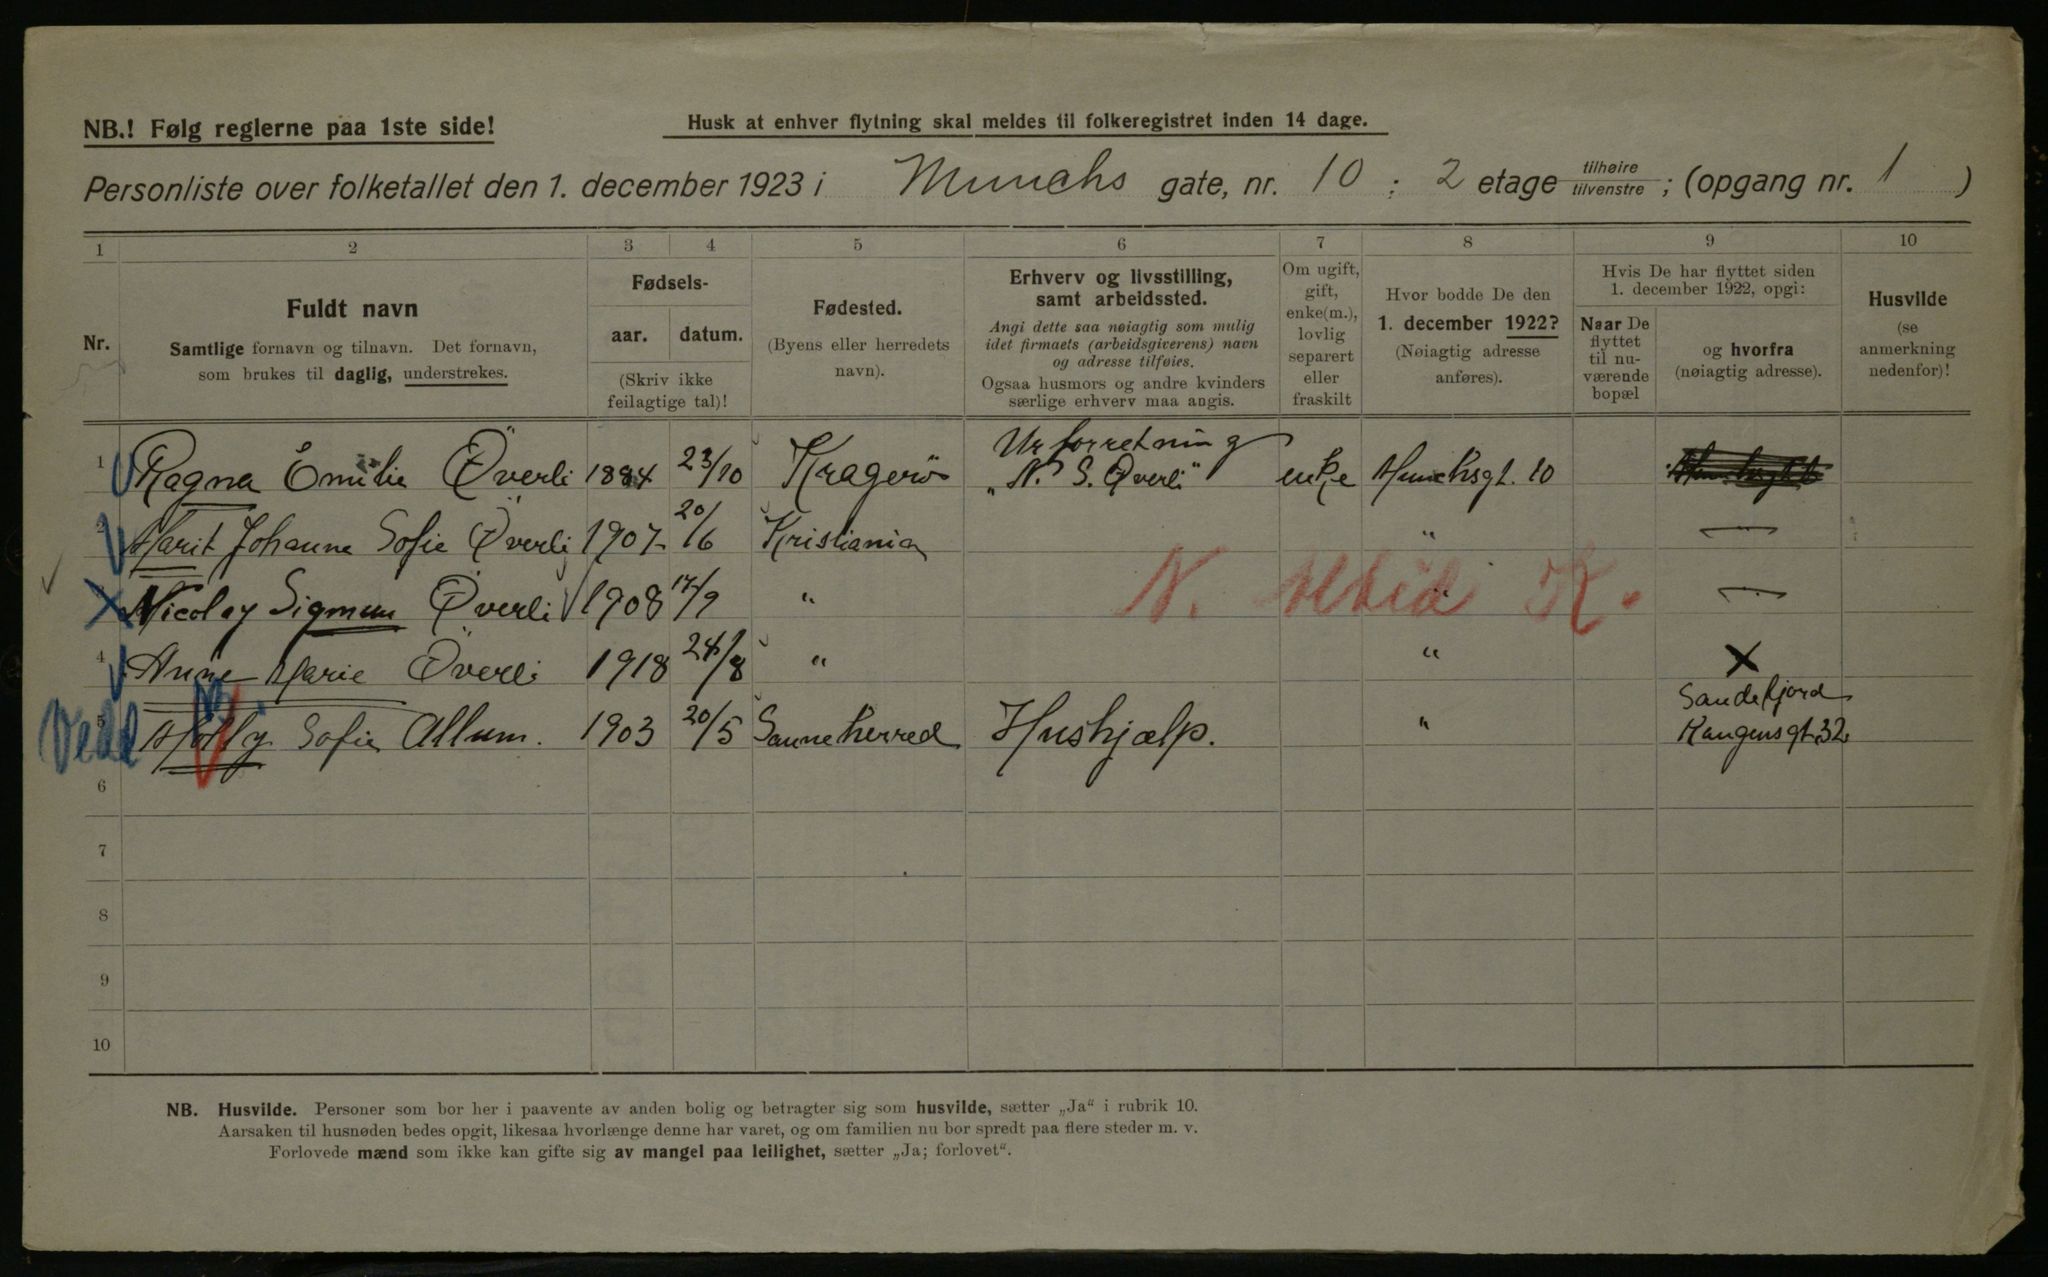 NB.! Følg reglerne paa 1ste side!
Husk at enhver flytning skal meldes til folkeregistret inden 14 dage.
Personliste over folketallet den 1. december 1923 i Munchs gate, nr. 10 ; 2 etage tilhøire/tilvenstre ; (opgang nr. 1 )
1 2 3 4 5 6 7 8 9 10
Nr.
Fuldt navn
Samtlige fornavn og tilnavn. Det fornavn,
som brukes til daglig, understrekes.
Fødsels-
aar. datum.
(Skriv ikke
feilagtige tal)!
Fødested.
(Byens eller herredets
navn).
Erhverv og livsstilling,
samt arbeidssted.
Angi dette saa nøiagtig som mulig
idet firmaets (arbeidsgiverens) navn
og adresse tilføies.
Ogsaa husmors og andre kvinders
særlige erhverv maa angis.
Om ugift,
gift,
enke(m.),
lovlig
separert
eller
fraskilt
Hvor bodde De den
1. december 1922?
(Nøiagtig adresse
anføres).
Hvis De har flyttet siden
1. december 1922, opgi:
Naar De
flyttet
til nu-
værende
bopæl
og hvorfra
(nøiagtig adresse).
Husvilde
(se
anmerkning
nedenfor)!
Urforretning
1 Ragna Emilie Överli 1884 23/10 Kragerö „N. S. Överli" enke Munchsgt. 10
2 Marit Johanne Sofie Överli 1907 20/6 Kristiania " —
3 Nicolay Sigmun Överli 1908 17/9 " " —
N. K.
4 Anne Marie Överli 1918 24/8 " " X
Sandefjord
Vedl 5 Molly Sofie Allum. 1903 20/5 Sanneherred Hushjælp. " Kongensgt. 32
6
7
8
9
10
NB. Husvilde. Personer som bor her i paavente av anden bolig og betragter sig som husvilde, sætter „Ja" i rubrik 10.
Aarsaken til husnøden bedes opgit, likesaa hvorlænge denne har varet, og om familien nu bor spredt paa flere steder m. v.
Forlovede mænd som ikke kan gifte sig av mangel paa leilighet, sætter „Ja; forlovet".